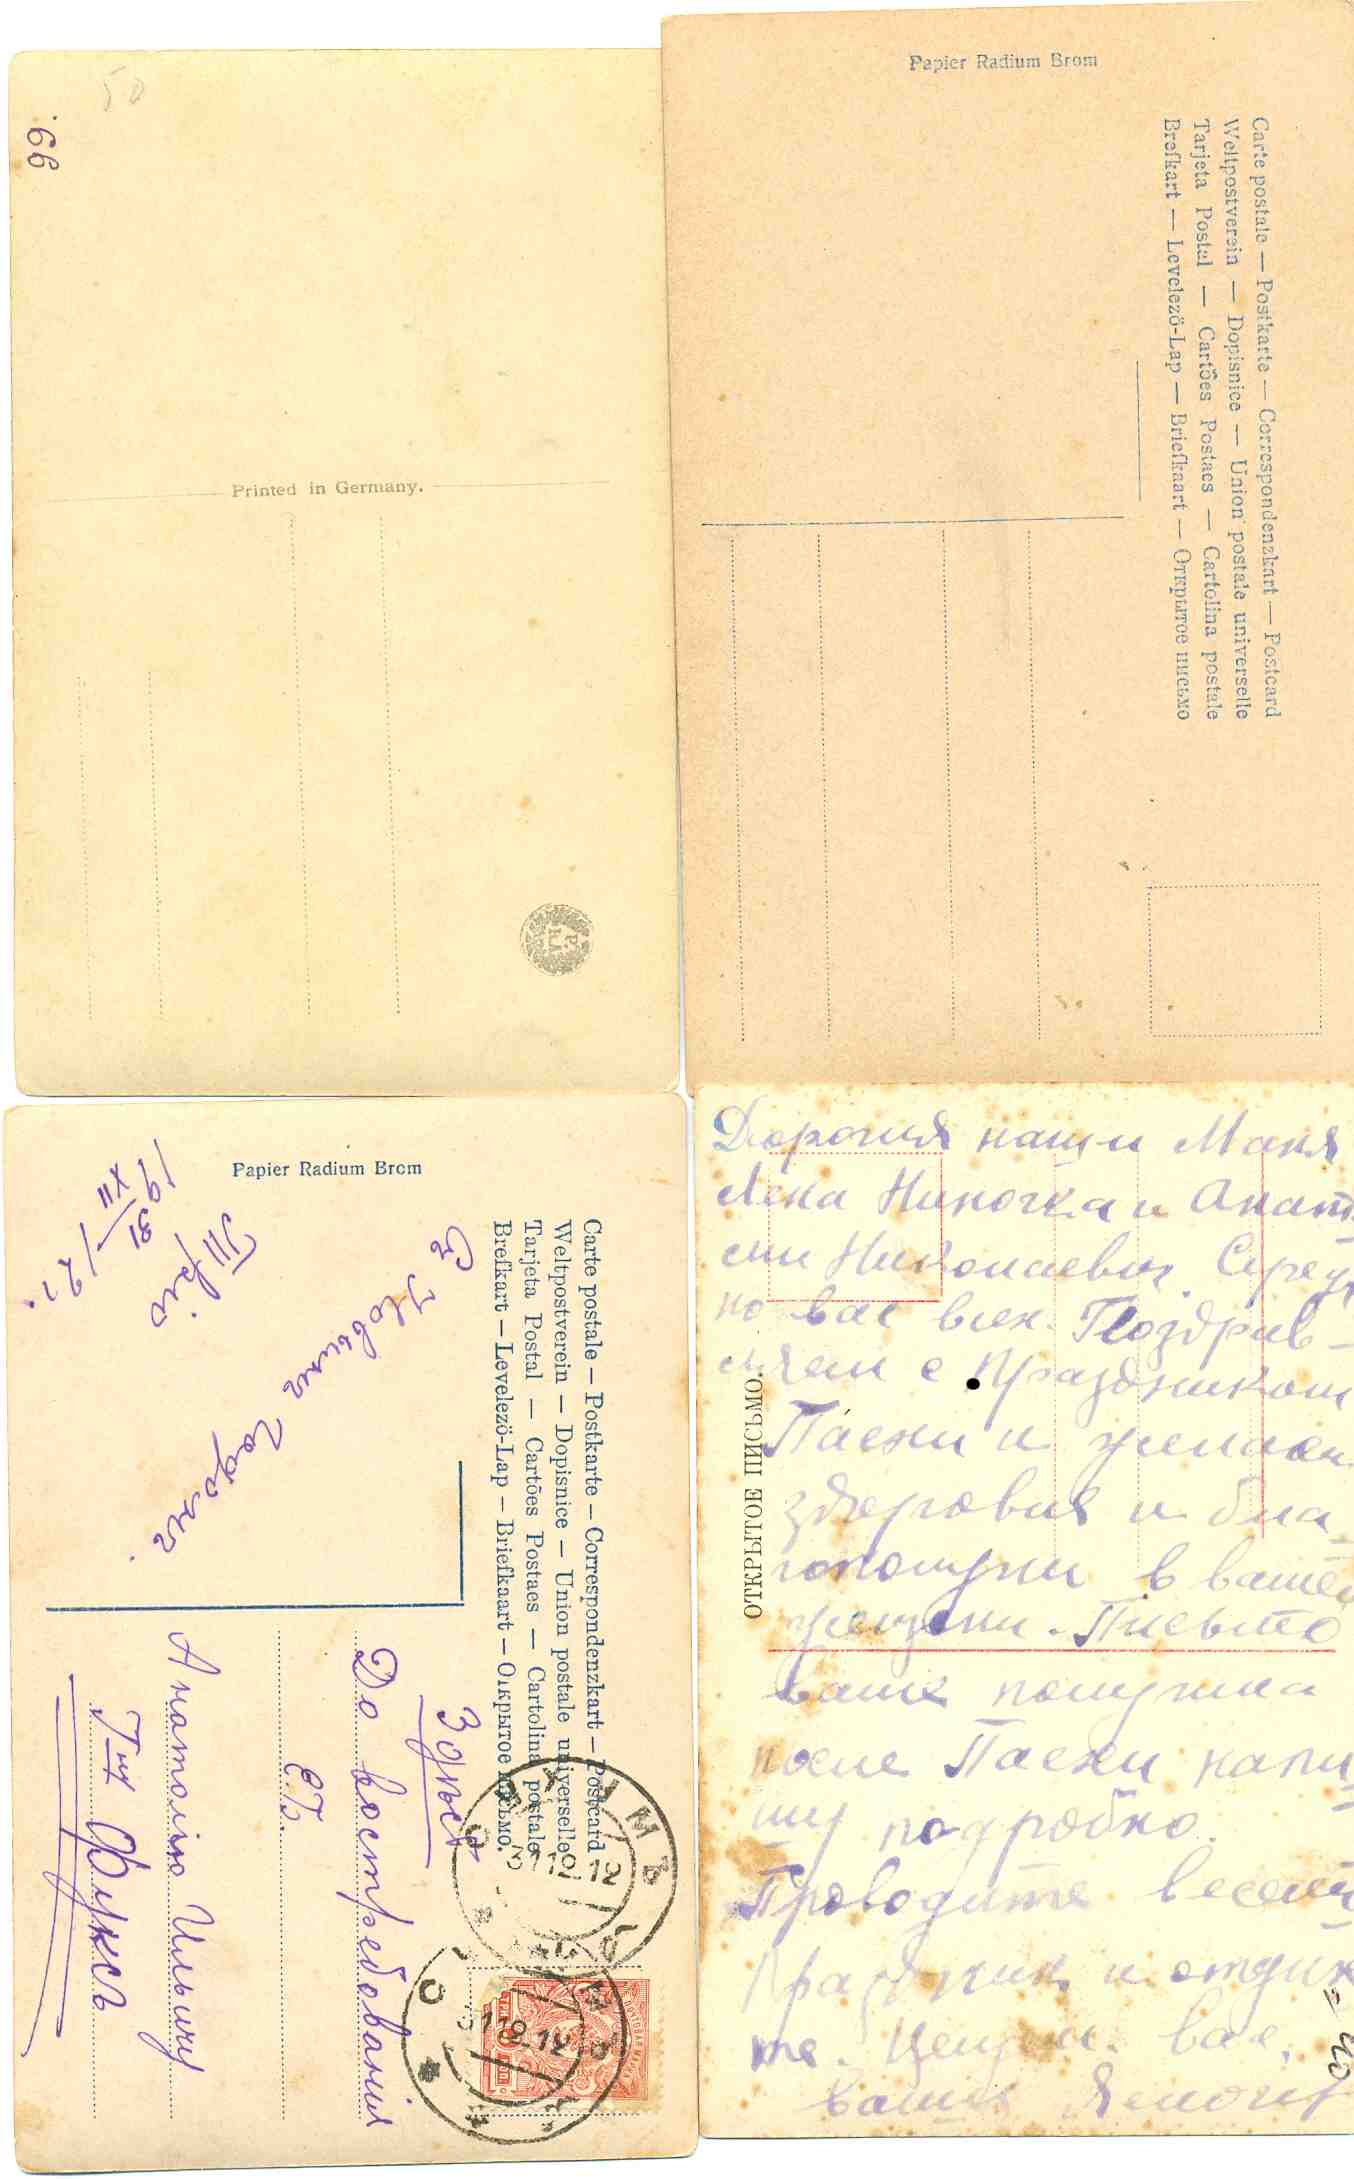 50
99.
Printed in Germany.
Papier Radium Brom
Carte postale — Postkarte — Correspondenzkart — Postcard
Weltpostverein — Dopisnice — Union postale universelle
Tarjeta Postal — Cartões Postaes — Cartolina postale
Brefkart — Levelező-Lap — Briefkaart — Открытое письмо
Papier Radium Brom
Carte postale — Postkarte — Correspondenzkart — Postcard
Weltpostverein — Dopisnice — Union postale universelle
Tarjeta Postal — Cartões Postaes — Cartolina postale
Brefkart — Levelező-Lap — Briefkaart — Открытое письмо.
Съ Новымъ Годомъ.
19 31/XII 12 г.
Здѣсь
До востребованія
ЕГВ.
Анатолію Ильичу
Фуксъ
СУХУМЪ
31 12 12
31 12 12
ОТКРЫТОЕ ПИСЬМО.
Дорогия наши Маня
Лена Ниночка и Анат
Николаевич Сердеч
но вас всех Поздрав-
ляем с Праздником
Пасхи и желаем
здоровия и бла
гополучи в вашей
жизни. Письмо
ваше получила
после Пасхи напи
шу подробно.
Проводите весели
Праздник и отдых
те. Целуем вас.
ваши